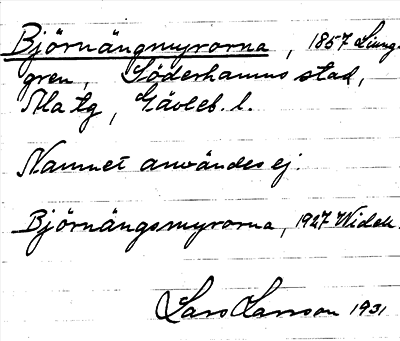 Björnängmyrorna, 1857 Ljung-
gren, Söderhamns stad,
Ala tg, Gävleb. l.
Namnet användes ej.
Björnängsmyrorna, 1927 Widak.
Lars Larsson 1931